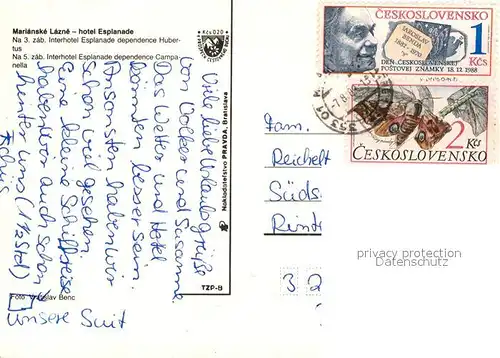 Mariánské Lázně – hotel Esplanade
Na 3. záb. Interhotel Esplanade dependence Huber-
tus
Na 5. záb. Interhotel Esplanade dependence Campa-
nella
Viele liebe Urlaubsgrüße
von Volker und Susanne.
Das Wetter und Hotel
könnten besser sein.
Ansonsten haben wir
schon viel gesehen.
Eine kleine Schiffsreise
haben wir auch schon
hinter uns (1 1/2 Std)
Foto Vladislav Benc
unsere Suit
Nakladateľstvo PRAVDA, Bratislava
TZP-B
ČESKOSLOVENSKO
JAROSLAV
BENDA
1882-1970
1 Kčs
DEŇ ČESKOSLOVENSKEJ
POŠTOVEJ ZNÁMKY 18. 12. 1988
353 01
2 Kčs
ČESKOSLOVENSKO
Fam.
Reichelt
Süds
Rint
privacy protection
oldthing.de
3 2